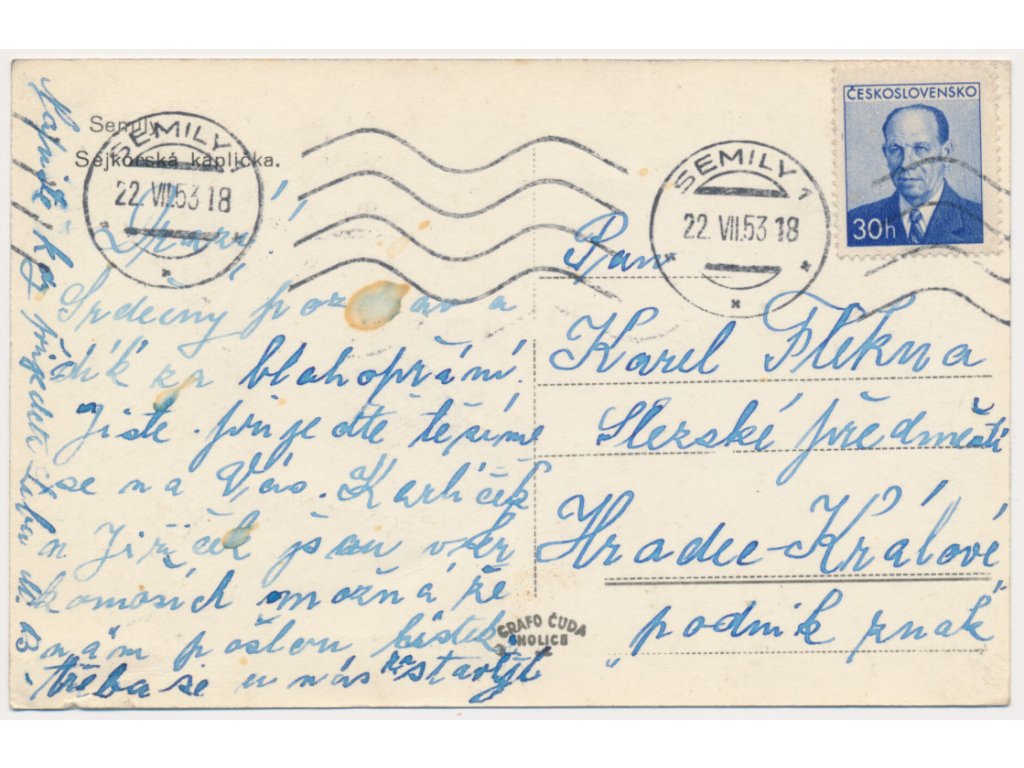 Semily.
Sejkorská kaplička.
SEMILY 1
22. VII. 53 18
SEMILY 1
22. VII. 53 18
ČESKOSLOVENSKO
30h
Drazí!
Srdečný pozdrav a
dík za blahopřání.
Jistě přijeďte těšíme
se na Vás. Karlíček
a Jiříček jsou v kr
možná že
nám pošlou lístek
třeba se u nás zastavíjí
Napište kdy přijedete
Pan
Karel Flekna
Slezské předměstí
Hradec-Králové
"podnik znak"
GRAFO ČUDA
HOLICE